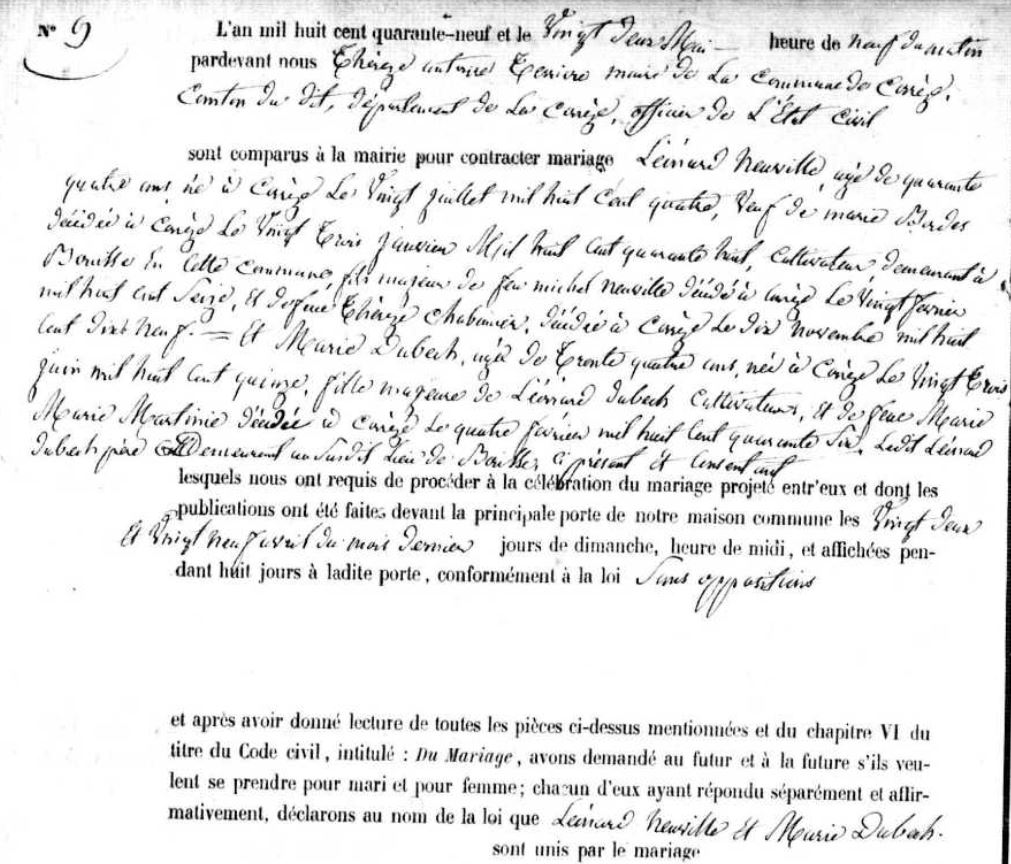 N° 9
L'an mil huit cent quarante-neuf et le Vingt Deux Mai — heure de neuf du matin
pardevant nous Thérèze antoine maire de La Commune de Corrèze,
Canton du dit, département de La Corrèze, officier de L'État Civil
sont comparus à la mairie pour contracter mariage Léonard Neuville, agé de quarante
quatre ans, né à Corrèze Le Vingt juillet mil huit Cent quatre, Veuf de marie Bordes
décédée à Corrèze Le Vingt Trois janvier Mil huit cent quarante huit, Cultivateur, demeurant à
Bousse En Cette Commune, fils majeur de feu michel neuville décédé à Corrèze Le Vingt février
mil huit cent Seize, Et de feue Thérèze Chabanier, décédée à Corrèze Le dix novembre mil huit
Cent dix neuf. = Et Marie Dubech, agée de Trente quatre ans, née à Corrèze Le Vingt Trois
juin mil huit cent quinze, fille majeure de Léonard Dubech Cultivateur, Et de feue Marie
Marie Martinie décédée à Corrèze Le quatre février mil huit Cent quarante Six, Ledit Léonard
Dubech père demeurant au Susdit Lieu de Bousse, ci présent Et Consentant
lesquels nous ont requis de procéder à la célébration du mariage projeté entr'eux et dont les
publications ont été faites devant la principale porte de notre maison commune les Vingt Deux
Et Vingt neuf avril du mois dernier jours de dimanche, heure de midi, et affichées pen-
dant huit jours à ladite porte, conformément à la loi Sans oppositions
et après avoir donné lecture de toutes les pièces ci-dessus mentionnées et du chapitre VI du
titre du Code civil, intitulé : Du Mariage, avons demandé au futur et à la future s'ils veu-
lent se prendre pour mari et pour femme; chacun d'eux ayant répondu séparément et affir-
mativement, déclarons au nom de la loi que Léonard Neuville Et Marie Dubech.
sont unis par le mariage